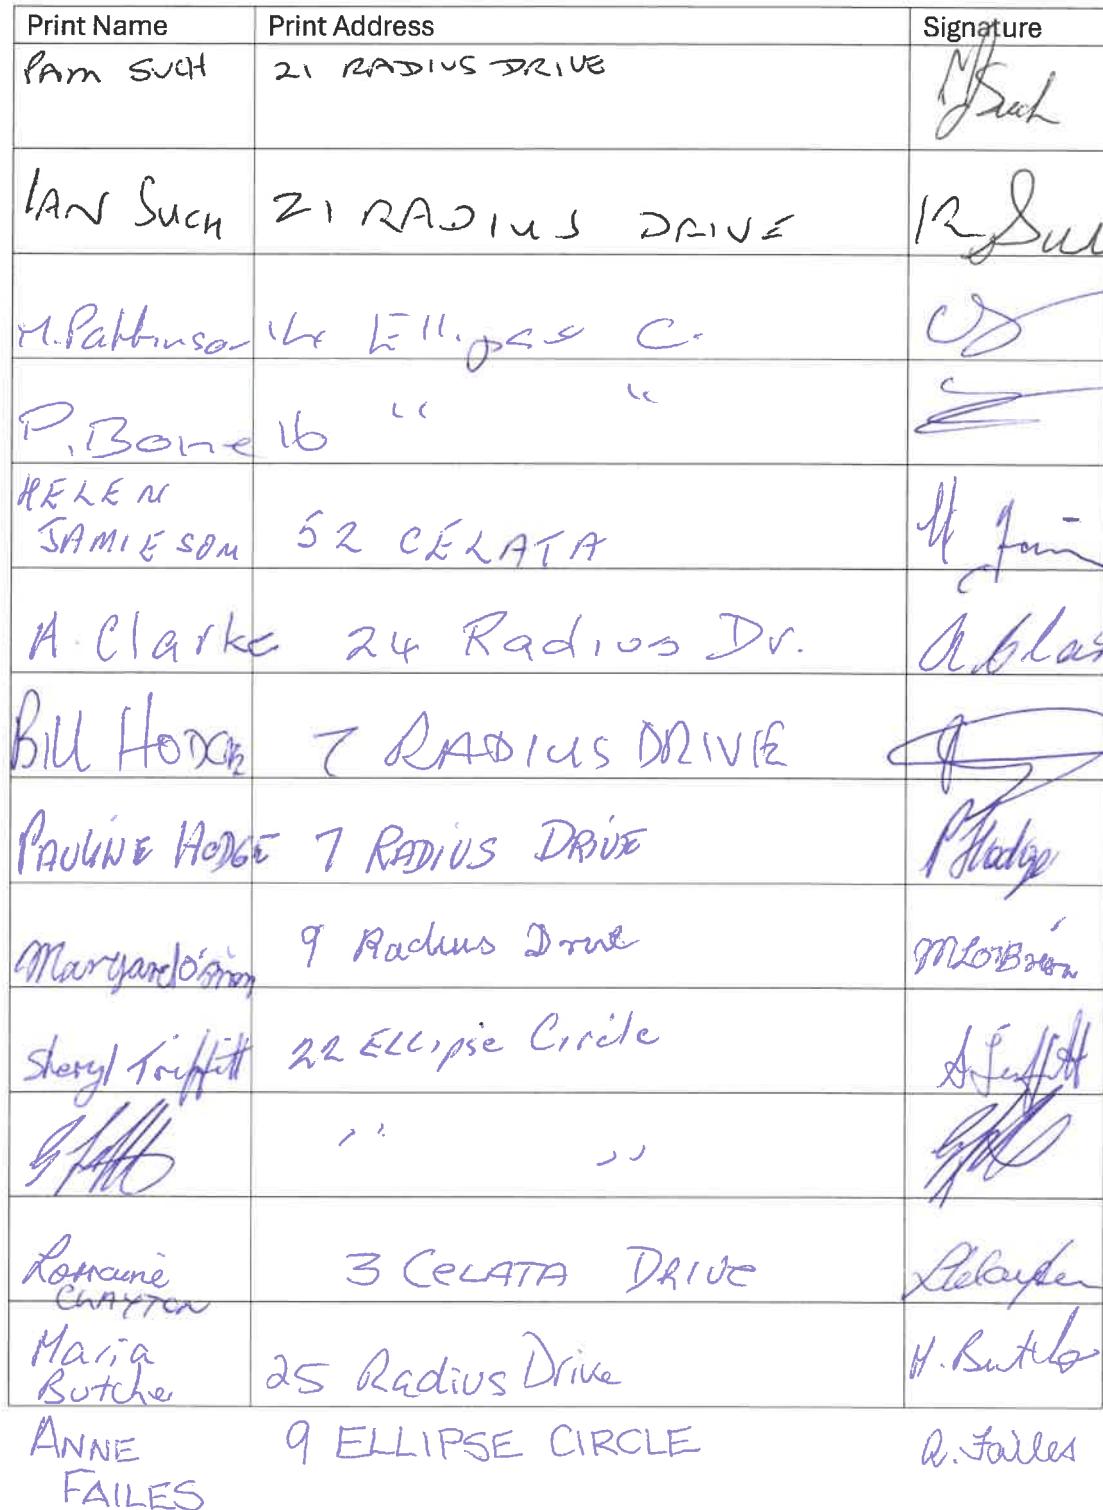 Print Name Print Address Signature
PAM SUCH 21 RADIUS DRIVE Such
IAN SUCH 21 RADIUS DRIVE
M. Pattinson 16 Ellipse C.
P. Bone 16 " "
HELEN
JAMIESON 52 CELATA
A. Clarke 24 Radius Dr.
BILL HODGE 7 RADIUS DRIVE
PAULINE HODGE 7 RADIUS DRIVE P Hodge
Margaret O'Brien 9 Radius Drive M L O'Brien
Sheryl Triffitt 22 Ellipse Circle S Triffitt
" "
Lorraine
CLAYTON 3 CELATA DRIVE
Maria
Butcher 25 Radius Drive M. Butcher
ANNE
FAILES 9 ELLIPSE CIRCLE A. Failes